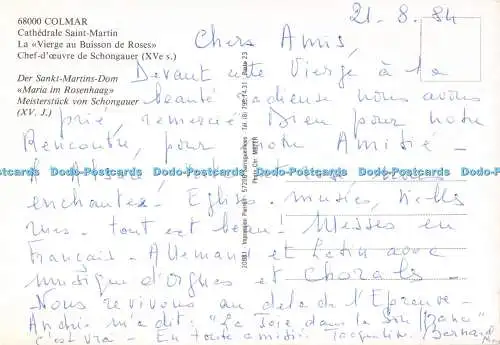 68000 COLMAR
Cathédrale Saint-Martin
La «Vierge au Buisson de Roses»
Chef-d'œuvre de Schongauer (XVe s.)
Der Sankt-Martins-Dom
«Maria im Rosenhaag»
Meisterstück von Schongauer
(XV. J.)
21.8.84
Chers Amis,
Devant cette Vierge à la
beauté radieuse nous avons
prié, remercié Dieu pour notre
Rencontre, pour notre Amitié -
Dodo-Postcards Dodo-Postcards Dodo-Postcards Dodo-Postcards Dodo-Postcards
enchantés. Eglises. musées, vieilles
rues. tout est beau! Messes en
Français. Allemand et Latin avec
musique d'orgues et Chorals -
Nous revivons au delà de l'Epreuve -
André m'a dit: "La Joie dans la Souffrance"
c'est vrai - En toute amitié Jacqueline, Bernard